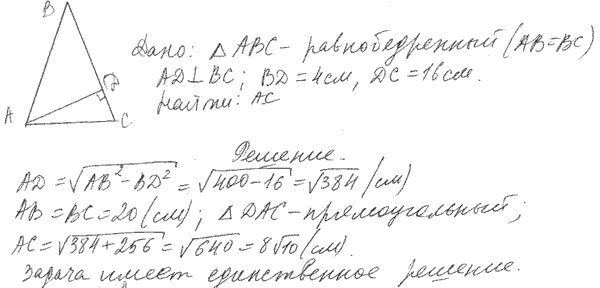 B
Дано: △ ABC - равнобедренный (AB=BC)
AD⊥BC; BD=4см, DC=16см.
Найти: AC
D
A
C
Решение.
AD = √AB² - BD² = √400-16 = √384 (см)
AB = BC = 20 (см); △ DAC - прямоугольный;
AC = √384+256 = √640 = 8√10 (см).
Задача имеет единственное решение.